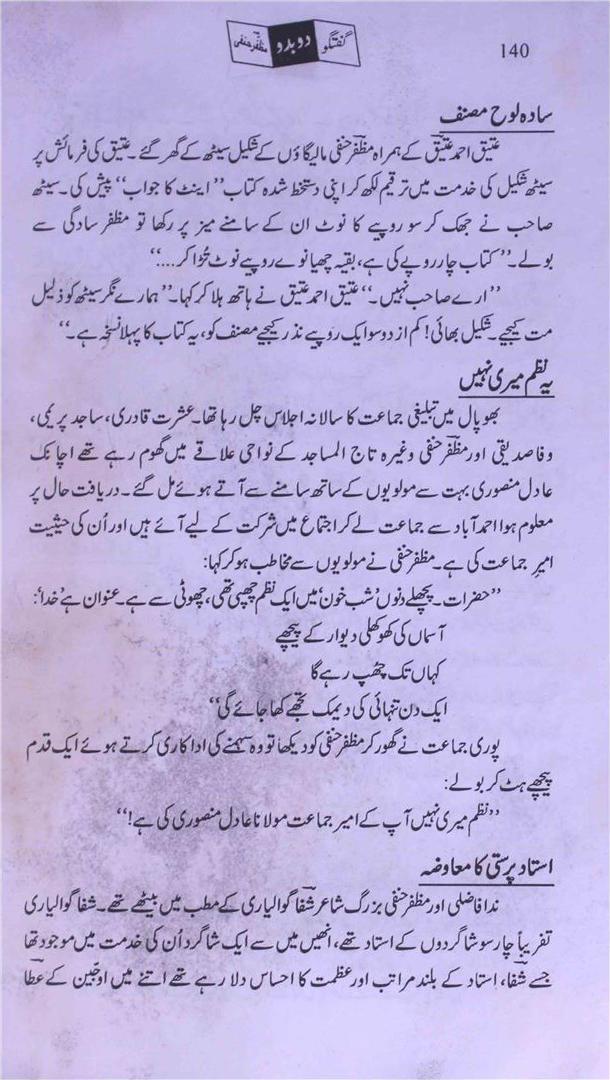 140
گفتگو دوبدو مظفر حنفی
سادہ لوح مصنف
عتیق احمد عتیقؔ کے ہمراہ مظفرؔ حنفی مالیگاؤں کے شکیل سیٹھ کے گھر گئے۔ عتیق کی فرمائش پر
سیٹھ شکیل کی خدمت میں ترقیم لکھ کر اپنی دستخط شدہ کتاب ’’اینٹ کا جواب‘‘ پیش کی۔ سیٹھ
صاحب نے جھک کر سو روپیے کا نوٹ ان کے سامنے میز پر رکھا تو مظفر سادگی سے
بولے۔ ’’کتاب چار روپے کی ہے، بقیہ چھیانوے روپیے نوٹ تُڑا کر....‘‘
’’ارے صاحب نہیں۔‘‘ عتیق احمد عتیق نے ہاتھ ہلا کر کہا۔ ’’ہمارے نگر سیٹھ کو ذلیل
مت کیجیے۔ شکیل بھائی! کم از دو سو ایک روپیے نذر کیجیے مصنف کو، یہ کتاب کا پہلا نسخہ ہے۔‘‘
یہ نظم میری نہیں
بھوپال میں تبلیغی جماعت کا سالانہ اجلاس چل رہا تھا۔ عشرت قادری، ساجد پریمی،
وفا صدیقی اور مظفرؔ حنفی وغیرہ تاج المساجد کے نواحی علاقے میں گھوم رہے تھے اچانک
عادل منصوری بہت سے مولویوں کے ساتھ سامنے سے آتے ہوئے مل گئے۔ دریافت حال پر
معلوم ہوا احمد آباد سے جماعت لے کر اجتماع میں شرکت کے لیے آئے ہیں اور اُن کی حیثیت
امیرِ جماعت کی ہے۔ مظفر حنفی نے مولویوں سے مخاطب ہو کر کہا:
’’حضرات۔ پچھلے دنوں ’شب خون‘ میں ایک نظم چھپی تھی، چھوٹی سے ہے۔ عنوان ہے ’خدا‘:
آسماں کی کھوکھلی دیوار کے پیچھے
کہاں تک چھپ رہے گا
ایک دن تنہائی کی دیمک تجھے کھا جائے گی‘‘
پوری جماعت نے گھور کر مظفر حنفی کو دیکھا تو وہ سہمنے کی اداکاری کرتے ہوئے ایک قدم
پیچھے ہٹ کر بولے:
’’نظم میری نہیں آپ کے امیر جماعت مولانا عادل منصوری کی ہے!‘‘
استاد پرستی کا معاوضہ
ندا فاضلی اور مظفر حنفی بزرگ شاعر شفاؔ گوالیاری کے مطب میں بیٹھے تھے۔ شفا گوالیاری
تفریباً چار سو شاگردوں کے استاد تھے، انھیں میں سے ایک شاگرد اُن کی خدمت میں موجود تھا
جسے شفاؔ، استاد کے بلند مراتب اور عظمت کا احساس دلا رہے تھے اتنے میں اوجّین کے عطاؔ